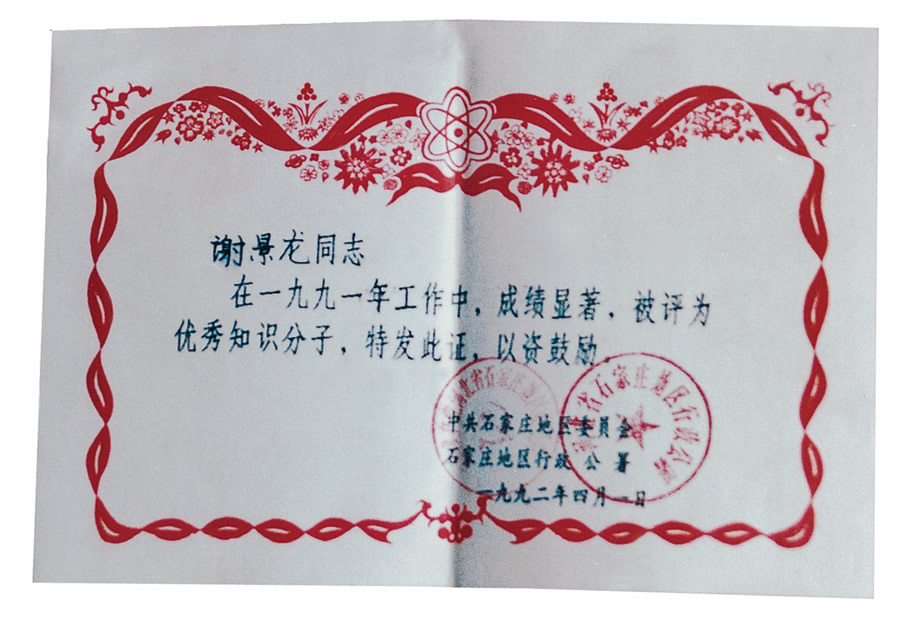 谢景龙同志
在一九九一年工作中，成绩显著，被评为
优秀知识分子，特发此证，以资鼓励。
中共石家庄地区委员会
石家庄地区行政公署
一九九二年四月一日
省石家庄地
省石家庄地区行政公署